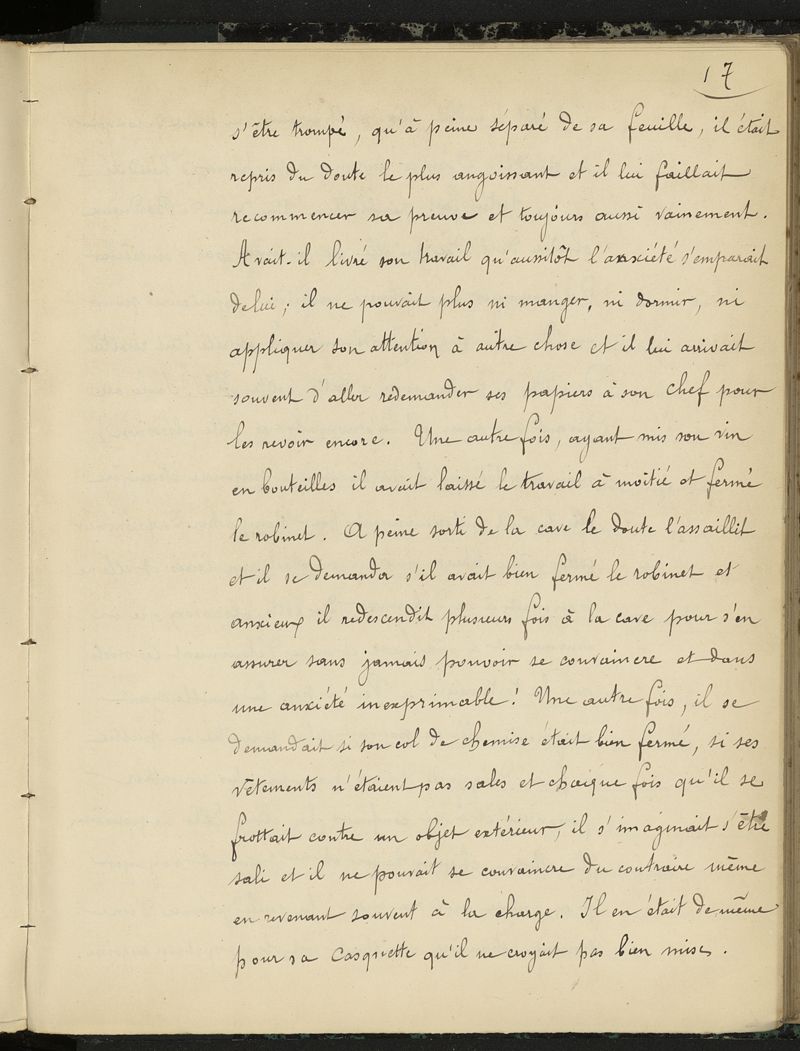 17
s'être trompé, qu'à peine séparé de sa feuille, il était
repris du doute le plus angoissant et il lui faillait
recommencer sa preuve et toujours aussi vainement.
Avait-il livré son travail qu'aussitôt l'anxiété s'emparait
de lui; il ne pouvait plus ni manger, ni dormir, ni
appliquer son attention à autre chose et il lui arrivait
souvent d'aller redemander ses papiers à son chef pour
les revoir encore. Une autre fois, ayant mis son vin
en bouteilles il avait laissé le travail à moitié et fermé
le robinet. A peine sorti de la cave le doute l'assaillit
et il se demanda s'il avait bien fermé le robinet et
anxieux il redescendit plusieurs fois à la cave pour s'en
assurer sans jamais pouvoir se convaincre et dans
une anxiété inexprimable! Une autre fois, il se
demandait si son col de chemise était bien fermé, si ses
vêtements n'étaient pas sales et chaque fois qu'il se
frottait contre un objet extérieur, il s'imaginait s'être
sali et il ne pouvait se convaincre du contraire même
en revenant souvent à la charge. Il en était de même
pour sa casquette qu'il ne croyait pas bien mise.